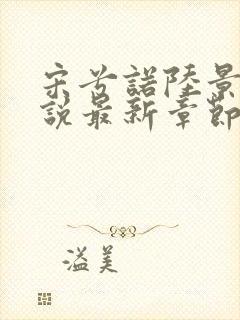 宋兮諾陸景
說最新章節
溢美